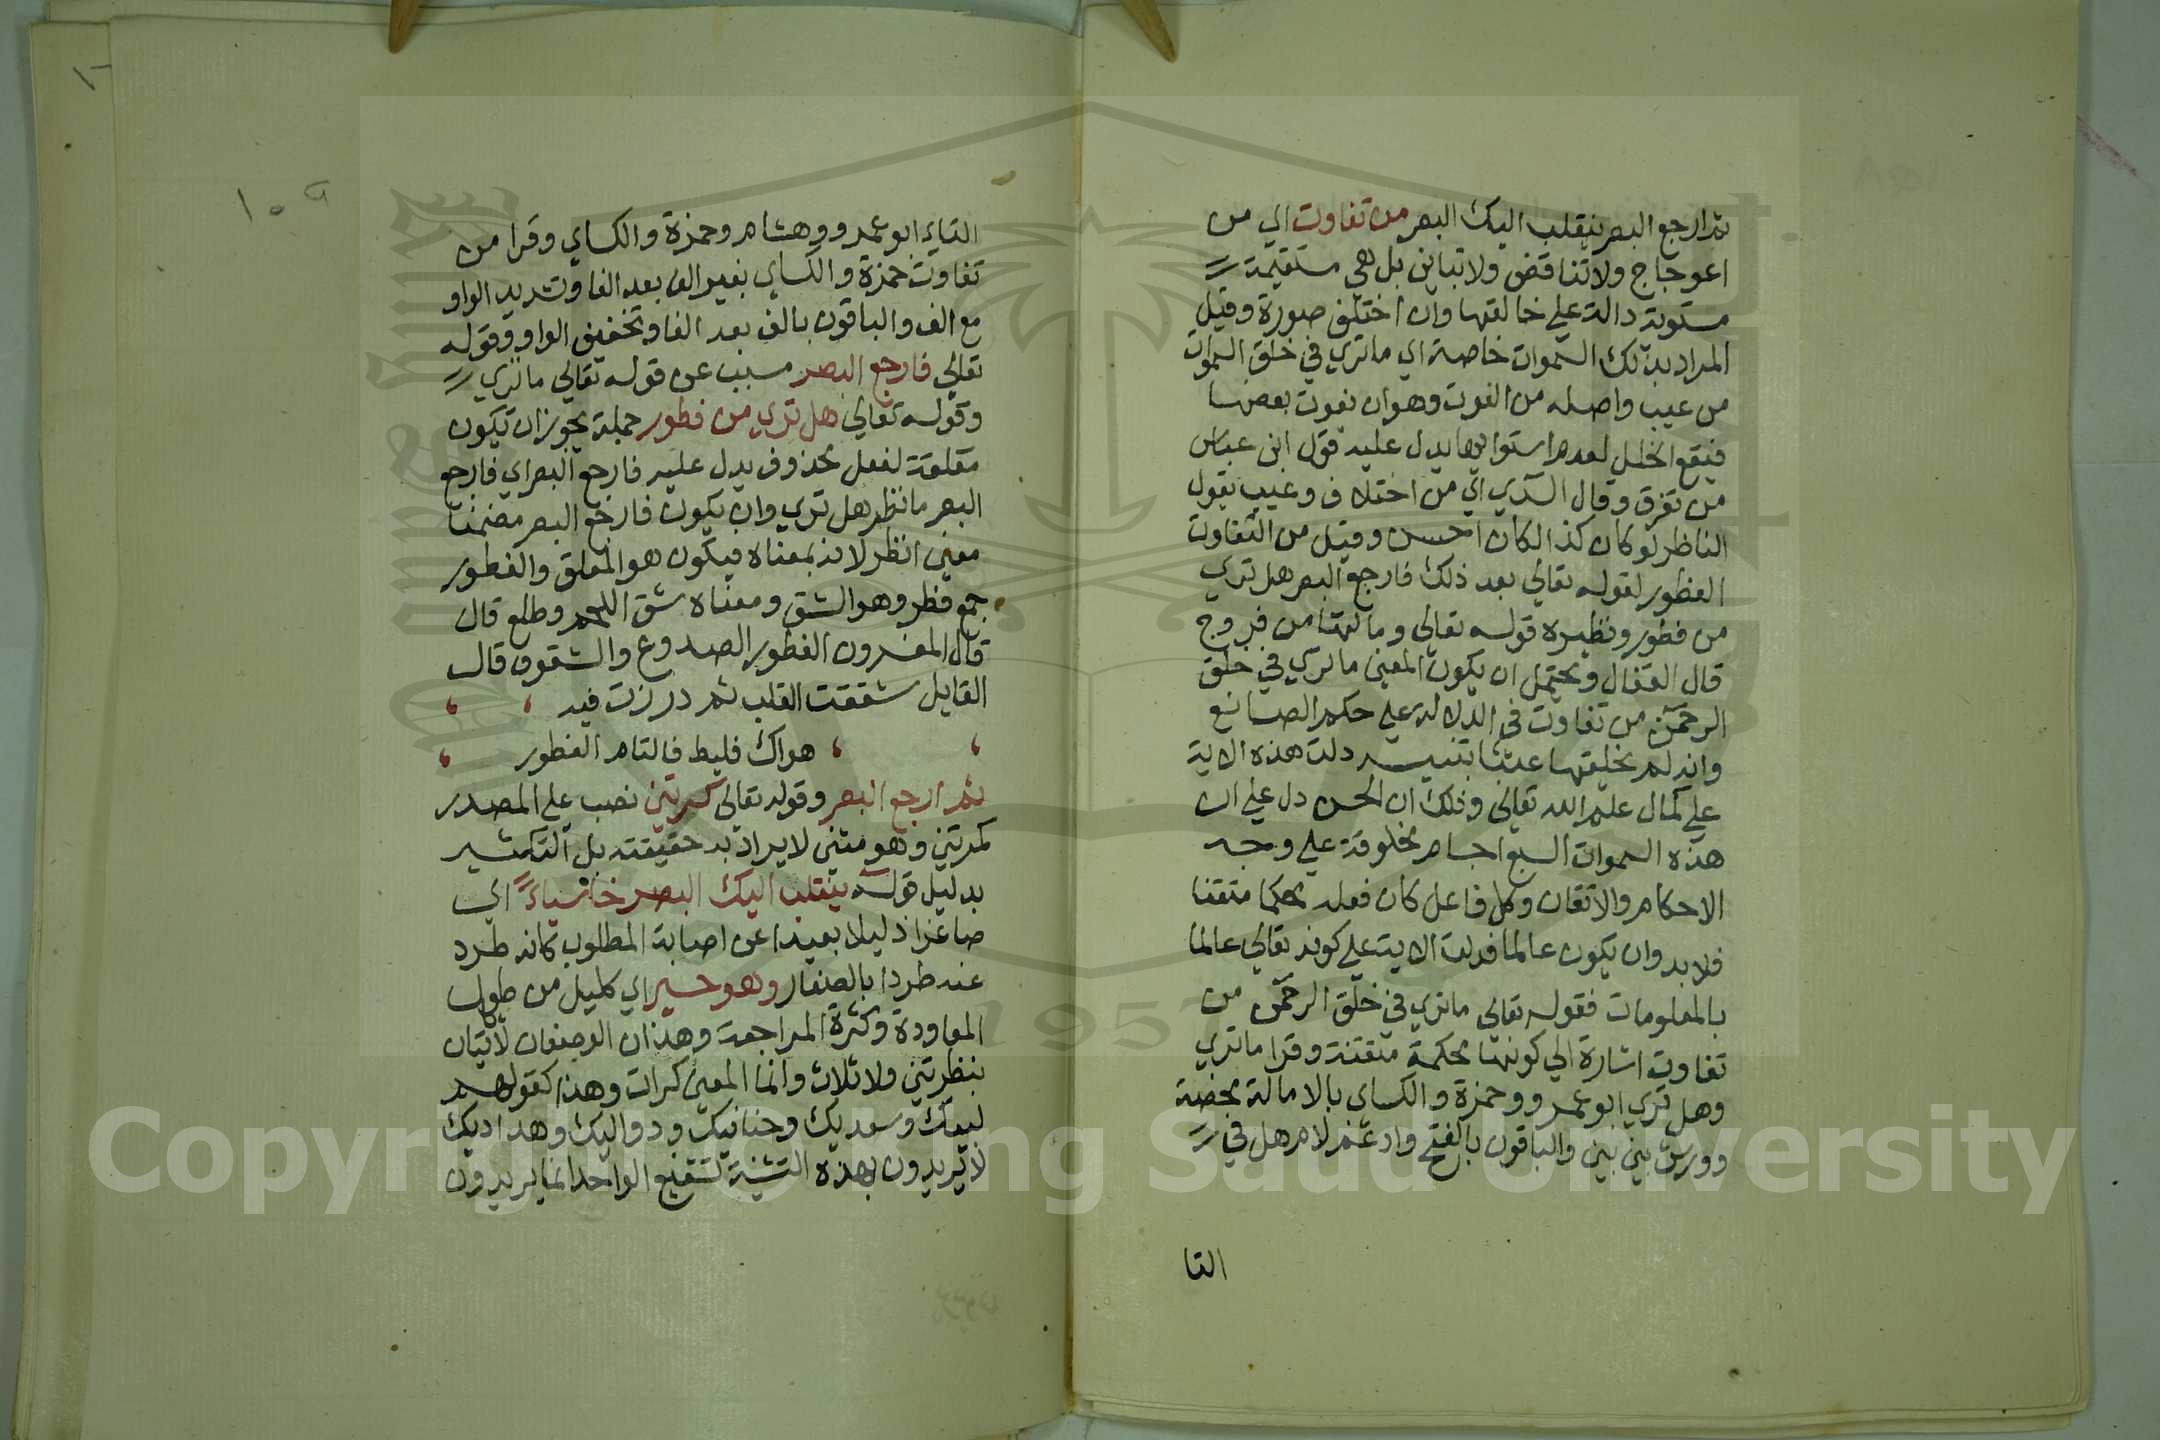 ثم ارجع البصر ينقلب اليك البصر من تفاوت اي من
اعوجاج ولا تناقض ولا تباين بل هي مستقيمة
مستوية دالة علي خالقها وان اختلف صورة وقيل
المراد بذلك السموات خاصة اي ما تري في خلق السموات
من عيب واصله من الفوت وهو ان يفوت بعضها
فيقع الخلل لعدم استوائها يدل عليه قول ابن عباس
من تفرق وقال السدي اي من اختلاف وعيب يقول
الناظر لو كان كذا لكان احسن وقيل من التفاوت
الفطور لقوله تعالي بعد ذلك فارجع البصر هل تري
من فطور ونظيره قوله تعالي وما لها من فروج
قال القفال ويحتمل ان يكون المعني ما تري في خلق
الرحمن من تفاوت في الدلالة علي حكم الصانع
وانه لم يخلقها عبثا تنبيه دلت هذه الاية
علي كمال علم الله تعالي وذلك ان الحس دل علي ان
هذه السموات السبع اجسام مخلوقة علي وجه
الاحكام والاتقان وكل فاعل كان فعله محكما متقنا
فلا بد وان يكون عالما فدلت الاية علي كونه تعالي عالما
بالمعلومات فقوله تعالي ما تري في خلق الرحمن من
تفاوت اشارة الي كونها محكمة متقنة وقرا ما تري
وهل تري ابو عمرو وحمزة والكساي بالامالة محضة
وورش بين بين والباقون بالفتح وادغم لام هل في
التا
١٠٩
التاء ابو عمرو وهشام وحمزة والكساي وقرا من
تفاوت حمزة والكساي بغير الف بعد الفا وتشديد الواو
مع الف والباقون بالف بعد الفا وتخفيف الواو وقوله
تعالي فارجع البصر مسبب عن قوله تعالي ما تري
وقوله تعالي هل تري من فطور جملة يجوز ان تكون
معلقة لفعل محذوف يدل عليه فارجع البصر اي فارجع
البصر فانظر هل تري وان يكون فارجع البصر مضمنا
معني انظر لانه بمعناه فيكون هو المعلق والفطور
جمع فطر وهو الشق ومعناه شق اللحم وطلع قال
قال المفسرون الفطور الصدوع والشقوق قال
القايل شققت القلب ثم ذررت فيه
هواك فليط فالتام الفطور
ثم ارجع البصر وقوله تعالي كرتين نصب علي المصدر
كمرتين وهو مثني لا يراد به حقيقته بل التكثير
بدليل قوله ينقلب اليك البصر خاسياء اي
صاغرا ذليلا بعيدا عن اصابة المطلوب كانه طرد
عنه طردا بالصغار وهو حسير اي كليل من طول
المعاودة وكثرة المراجعة وهذان الوصفان لا يتيان
بنظرتين ولا ثلاث وانما المعني كرات وهذا كقولهم
لبيك وسعديك وحنانيك ودواليك وهذاديك
لا يريدون بهذه التثنية تشفيع الواحد انما يريدون
Copyright © King Saud University
1957